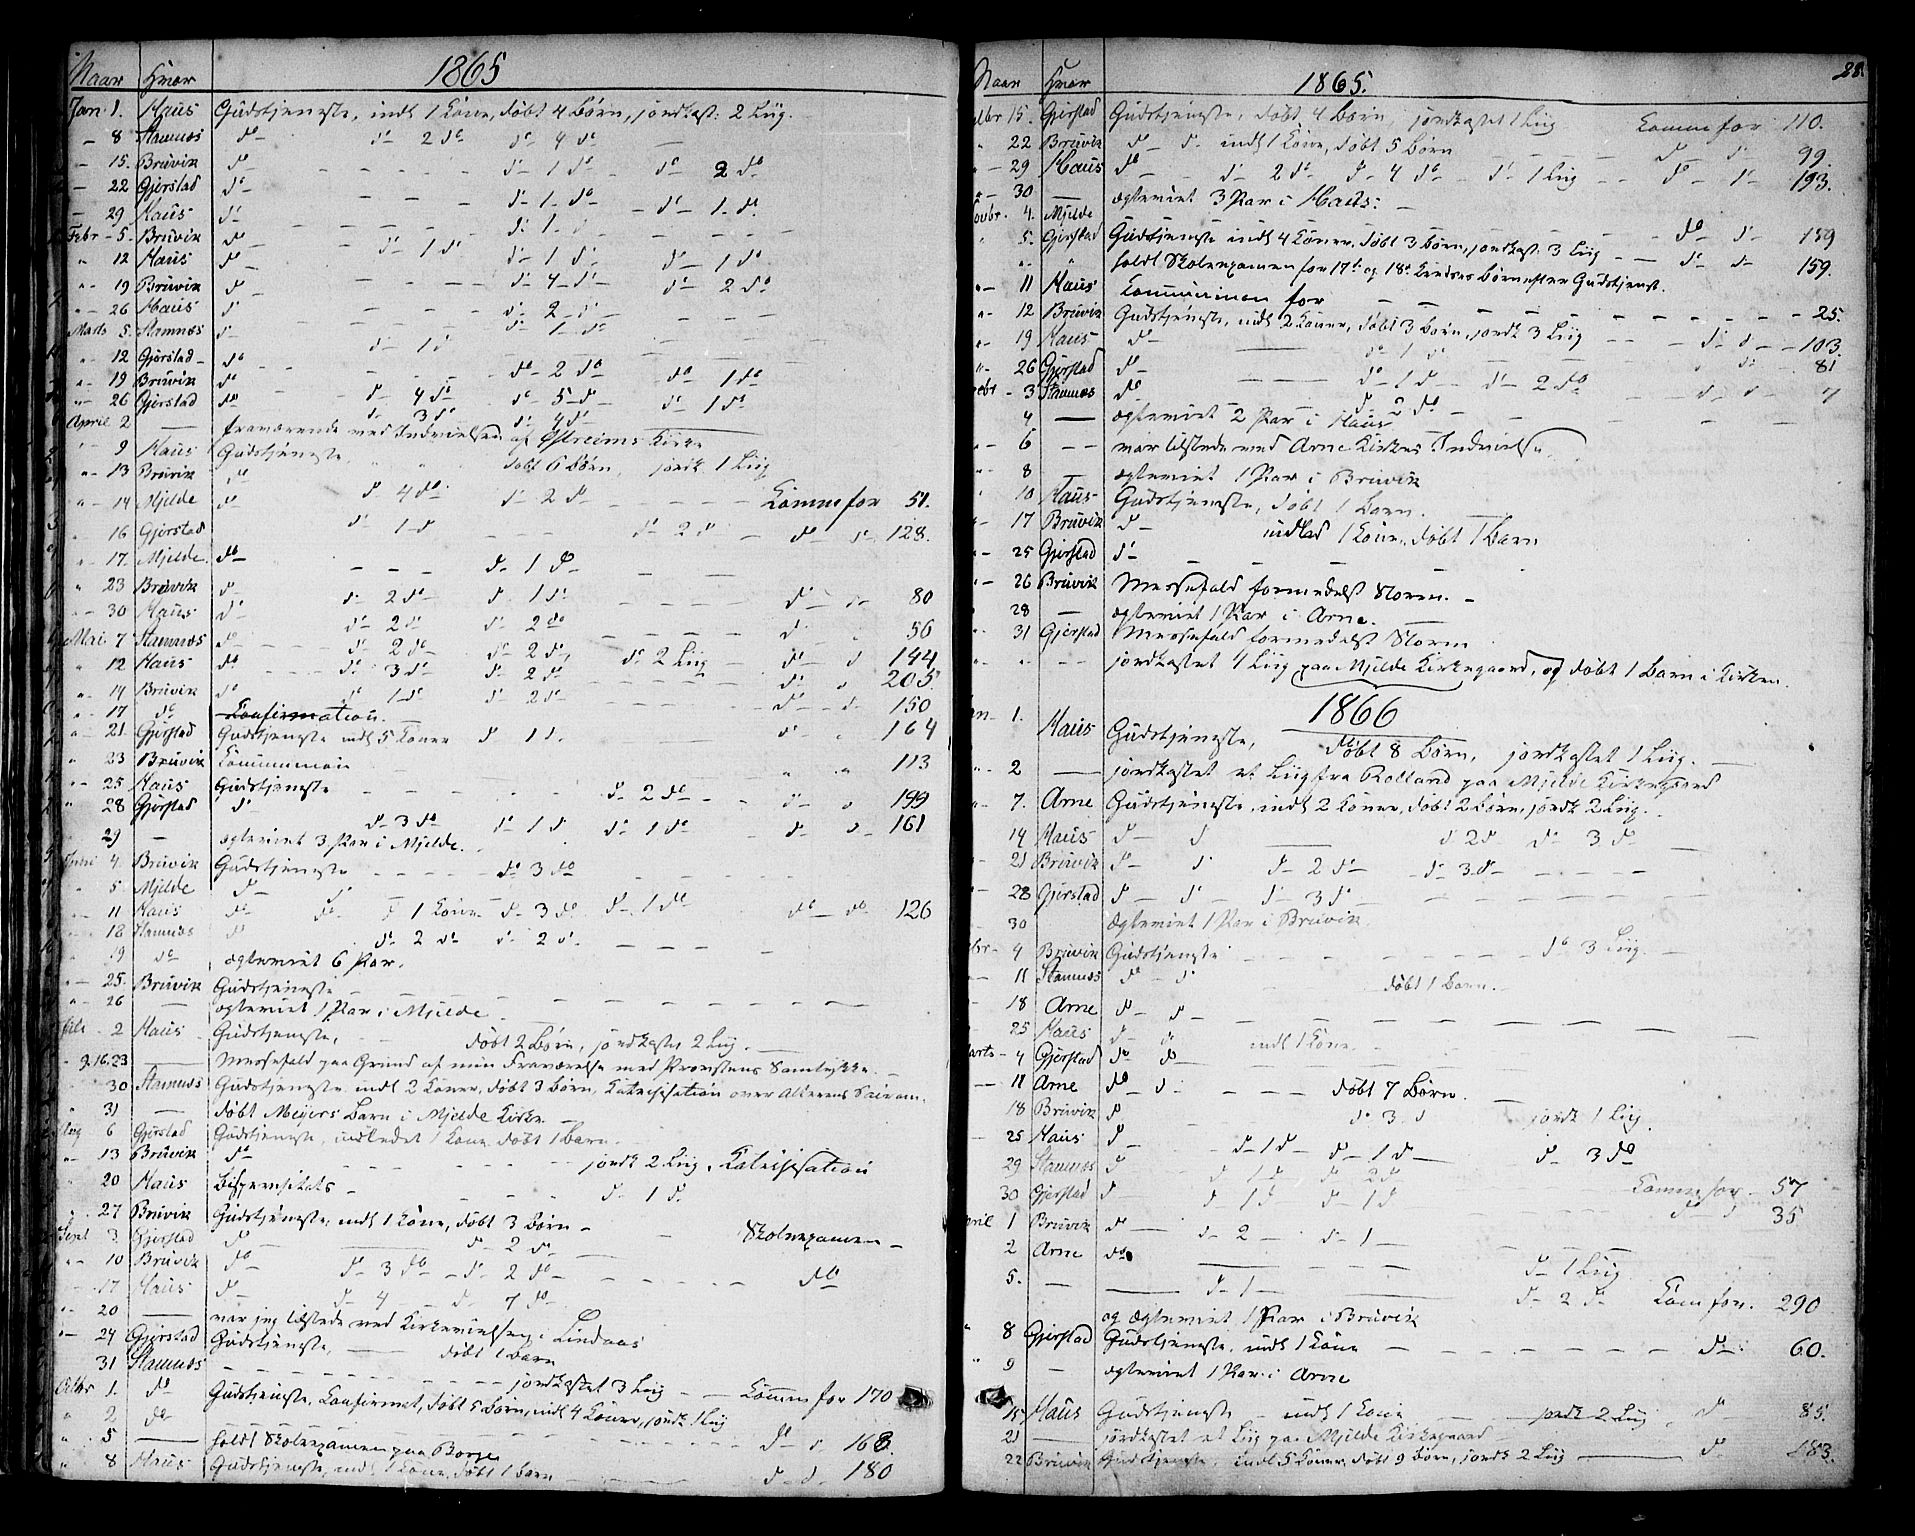 Naar Hvor 1865
Jan. 1. Haus Gudstjeneste, indl 1 Kone, døbt 4 Børn, jordkast: 2 Liig.
— 8 Stamnæs do — do 2 do do 4 do —
— 15. Bruvik do — — — — do 1 do — do 2 do
— 22 Gjerstad do — — — — do 1 do — do 1 do
— 29 Haus do — — — — do 1 do
Febr — 5 — Bruvik do — do 1 do do 1 do do 1 do
" 12 Haus do — — — do 4 do do 2 do
" 19 Bruvik do — — — do 2 do
" — 26 Haus do — — — do 1 do
Marts 5. Stamnæs do — do 1 do
" — 12 Gjerstad do — — — do 2 do do 1 do
" — 19 Bruvik do do 4 do do 5 do do 1 do
" — 26 Gjerstad do do 3 do do 4 do
April 2 — fraværende ved Indvielsen af Østreims Kirke
" — 9 Haus Gudstjeneste, døbt 6 Børn, jordk 1 Liig
" — 13 Bruvik do do 4 do do 2 do — — Komm for 51.
" — 14 Mjelde do do 1 do — do 2 do — do do 128.
" 16 Gjerstad
" — 17. Mjelde. do — — — do 1 do
" 23 Bruvik do — do 2 do do 1 do — — do — 80
" — 30 Haus do — do 2 do do 2 do — — do 56
Mai 7 Stamnæs do do 2 do do 2 do, do 2 Liig — do do 144
" — 12 Haus do do 3 do do 2 do — — do 205.
" — 14 Bruvik do do 1 do do 2 do — — do do 150
" — 17 do Confirmation.
" — 21 Gjerstad Gudstjeneste indl 5 Koner do 1 do — do 164
" 23 Bruvik Kommunion — — — " " 113
" — 25 Haus Gudstjeneste — — — do 2 do — do do 199
" 28 Gjerstad do do 3 do do 1 do do 1 do — do do 161
" 29 — ægteviet 3 Par i Mjelde.
Juni 4. Bruvik Gudstjeneste — — — do 3 do — —
" 5. Mjelde do — do
" — 11 Haus do do do 1 Kone do 3 do do 1 do do do 126
" — 18 Stamnæs do do 2 do do 2 do — —
" 19 do ægteviet 6 Par.
" — 25. Bruvik Gudstjeneste — — —
" — 26 — ægteviet 1 Par i Mjelde — — —
Juli — 2 Haus Gudstjeneste, — døbt 2 Børn, jordkastet 2 Liig. —
— 9. 16. 23 — Messefald paa Grund af min Fraværelse med Provstens Samtykke. —
" 30 Stamnæs Gudstjeneste indl 2 Koner, døbt 3 Børn, Katechisation over Alterens
" 31 — døbt Meyers Barn i Mjelde Kirke —
Aug 6 Gjerstad Gudstjeneste, indledet 1 Kone døbt 1 Barn.
" — 13 Bruvik do — — — jordk 2 Liig, Katechisation
" 20 Haus Bispevisitats — — — do 1 do
" . 27 Bruvik Gudstjeneste, indl 1 Kone, døbt 3 Børn —
Sept 3 Gjerstad do — — do 2 do — — Skoleexamen —
" — 10 Bruvik do do 3 do — do 2 do — — do
" — 17 Haus do — do 4 — do 7 do
" — 20 — var jeg tilstede ved Kirkevielsen i Lindaas
" — 24 Gjerstad Gudstjeneste, — døbt 1 Barn
31 Stamnæs — — — jordkastet 3 Liig — — Komm for 170
Octbr 1. do Gudstjeneste, Konfirmat, døbt 5 Børn, indl 4 Koner, jordk 1 Liig
" 2 do — — — do do 168.
" . 5 — holdt Skoleexamen paa Borge
" 8 Haus Gudstjeneste, indl 1 Kone, døbt 1 Barn — — do do 180
Naar Hvor 1865. 28.
Octbr 15. Gjerstad Gudstjeneste, døbt 4 Børn, jordkastet 1 Liig Komm for 110.
" 22 Bruvik do — do indl 1 Kone, døbt 5 Børn — — do do 99.
" — 29 Haus do — do 2 do do 4 do — do 1 Liig — — do — do 193.
" — 30 — ægteviet 3 Par i Haus. —
Novbr. 4. Mjelde
" 5. Gjerstad Gudstjeneste indl 4 Koner, døbt 3 Børn, jordkast: 3 Liig — — do do 159
" " holdt Skoleexamen for 17de og 18de Kredses Børn efter Gudstjenest. do do 159.
" — 11 Haus Kommunion for — — — 25.
" — 12 Bruvik Gudstjeneste, indl 2 Koner, døbt 3 Børn, jordk 3 Liig — — do do — 103.
" 19 Haus do — — do 1 do — — do 81
" 26 Gjerstad do — — do 1 do — do 2 do — — do do 7
Decbr — 3 Stamnæs do — do 2 do —
4 — ægteviet 2 Par i Haus
" — 6 — — var tilstede ved Arne Kirkes Indvielse
" 8 — ægteviet 1 Par i Bruvik
" 10 Haus Gudstjeneste, døbt 1 Barn.
" 17 Bruvik do — indled 1 Kone, døbt 1 Barn
" — 25 Gjerstad do —
" — 26 Bruvik Messefald formedelst Storm. —
28 — ægteviet 1 Par i Arne. —
" 31 Gjerstad Messefald formedelst Storm
" " — — jordkastet 4 Liig paa Mjelde Kirkegaard, og døbt 1 Barn i Kirken.
1866
Jan — 1. Haus Gudstjeneste, døbt 8 Børn, jordkastet 1 Liig. —
" — 2 — jordkastet et Liig fra Rolland paa Mjelde Kirkegaard
" — 7. Arne Gudstjeneste, indl 2 Koner, døbt 2 Børn, jordk 2 Liig.
14 Haus do — do — do 2 do do 3 do
— 21 Bruvik do — do — do 2 do — do 3 do — —
— 28 Gjerstad do — do do 3 do
30 Ægteviet 1 Par i Bruvik.
Febr — 4 Bruvik Gudstjeneste — — — do 3 Liig. —
— 11 Stamnæs do — do døbt 1 Barn. —
— 18 Arne do — do — — —
25 Haus do — " indl 1 Kone — —
Marts — 4 Gjerstad do do —
— 11 Arne do — do døbt 7 Børn. —
18 Bruvik do do 3 do jordk 1 Liig.
— 25 Haus do — do 1 do — do 1 do — do 3 do
29 Stamnæs do — do 1 do do 2 do
30 Gjerstad do — do 1 do do 1 do Komm for — 57
April 1 Bruvik do — do 2 — do 1 — do do 35
2 Arne do — — do 1 Liig.
5. — — do 1 — do 2 do Kom for. 290
og Ægteviet 1 Par i Bruvik
" 8 Gjerstad Gudstjeneste, indl 1 Kone — — — do — 60.
" 9 — ægteviet 1 Par i Arne
15 Haus Gudstjeneste — indl 1 Kone — — jordk 2 Liig, do — 85.
21 — jordkastet et Liig paa Mjelde Kirkegaard —
22 Bruvik Gudstjeneste, indl 5 Koner, døbt 9 Børn, jordk 2 Liig — do 183.